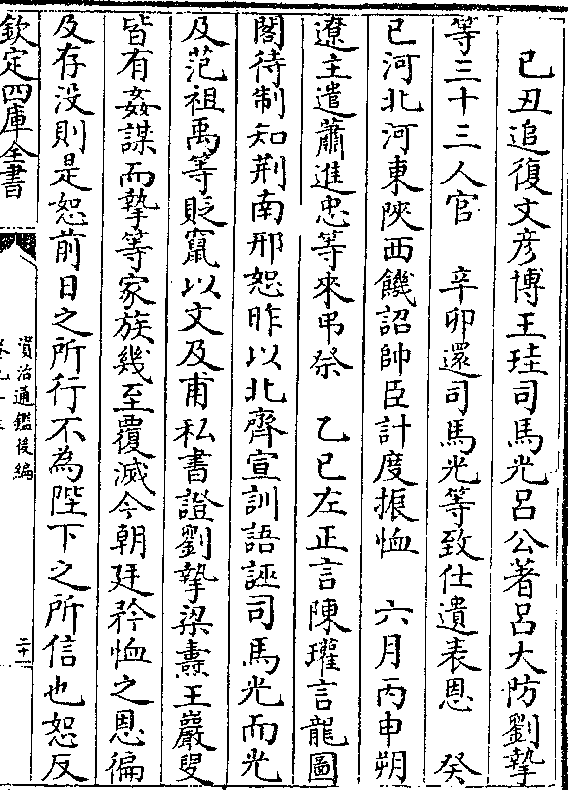 己丑追復文彦博王珪司馬光呂公著呂大防劉摯
等三十三人官　辛卯還司馬光等致仕遺表恩　癸
巳河北河東陜西饑詔帥臣計度振恤　六月丙申朔
遼主遣蕭進忠等來弔祭　乙巳左正言陳瓘言龍圖
閣待制知荆南邢恕昨以北齊宣訓語誣司馬光而光
及范祖禹等貶竄以文及甫私書證劉摯梁燾王巖叟
皆有姦謀而摯等家族幾至覆滅今朝廷矜恤之恩徧
及存没則是恕前日之所行不為陛下之所信也恕反
欽定四庫全書
資治通鑑後編
二十一